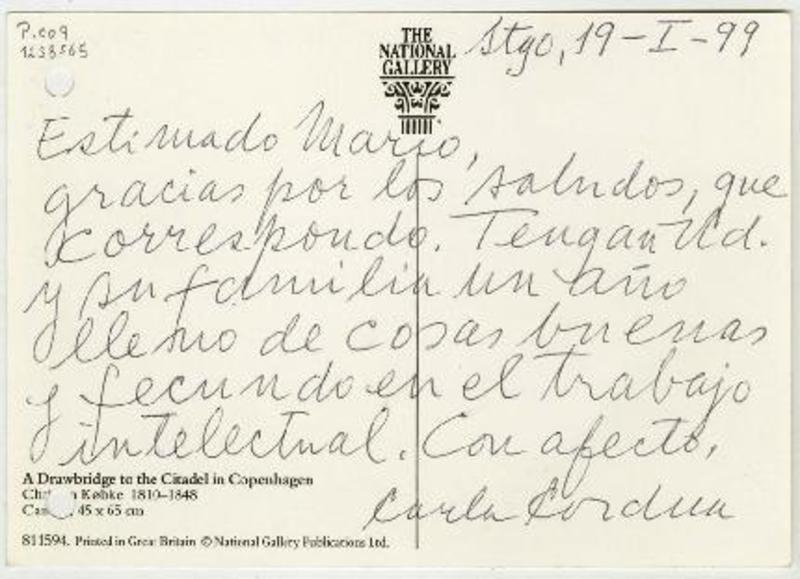 P.cog
1233565
THE
NATIONAL
GALLERY
Stgo, 19-I-99
Estimado Mario,
gracias por los saludos, que
correspondo. Tengan Ud.
y su familia un año
lleno de cosas buenas
y fecundo en el trabajo
intelectual. Con afecto,
Carla Cordua
A Drawbridge to the Citadel in Copenhagen
Købke 1810–1848
45 x 65 cm
811594. Printed in Great Britain © National Gallery Publications Ltd.